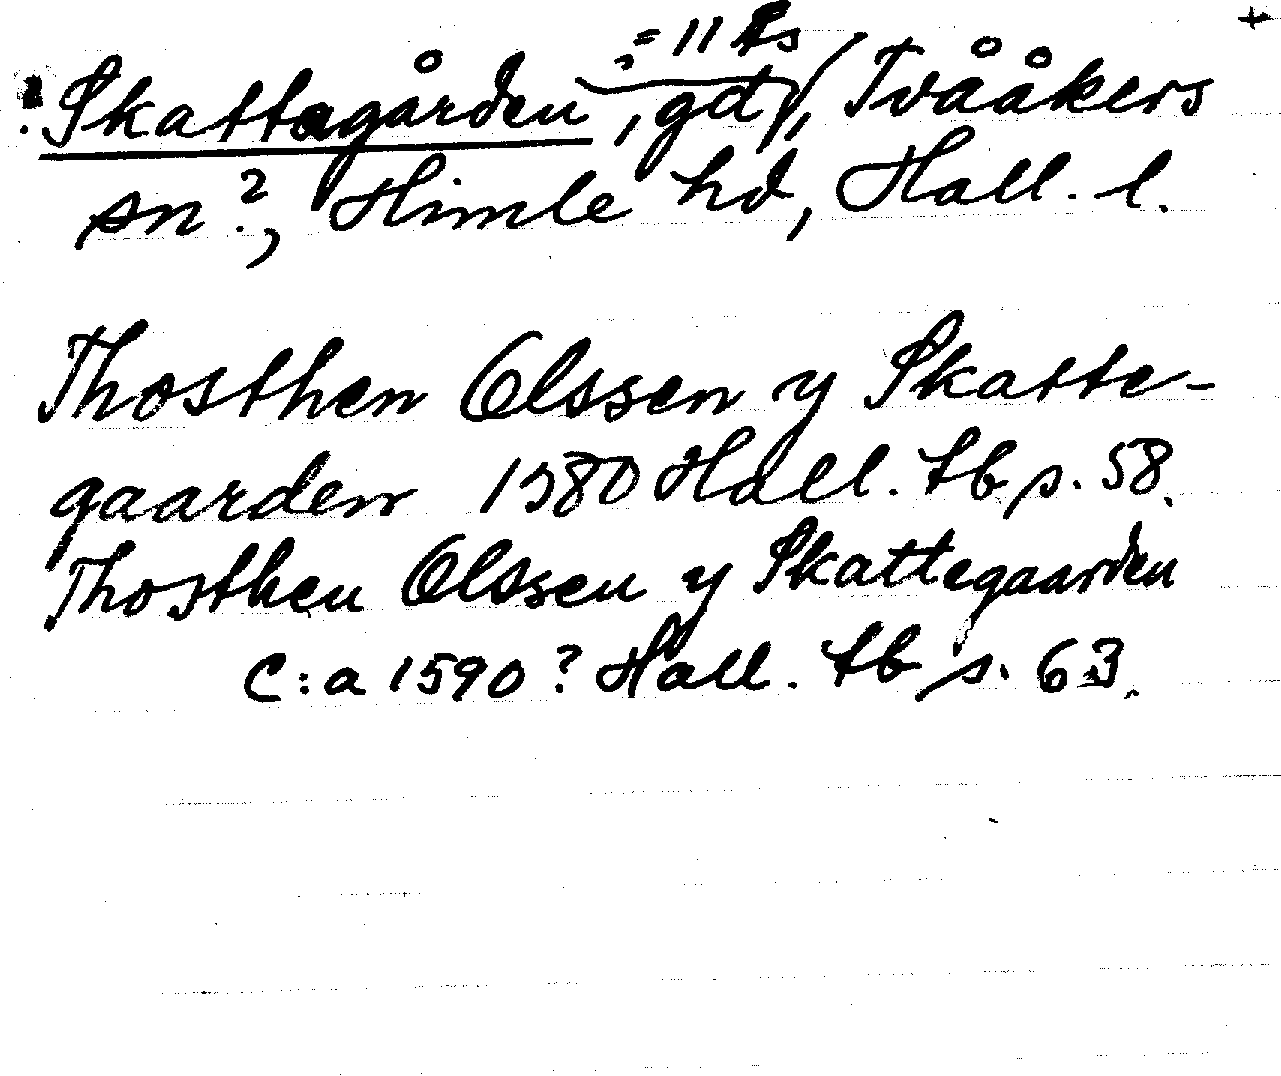 ? = 11 Rs +
Skattagården, gd, Tvååkers
sn?, Himle hd, Hall. l.
Thosthen Olssen y Skatte-
gaarden 1580 Hall. tb s. 58.
Thosthen Olssen y Skattegaarden
C:a 1590? Hall. tb s. 63.